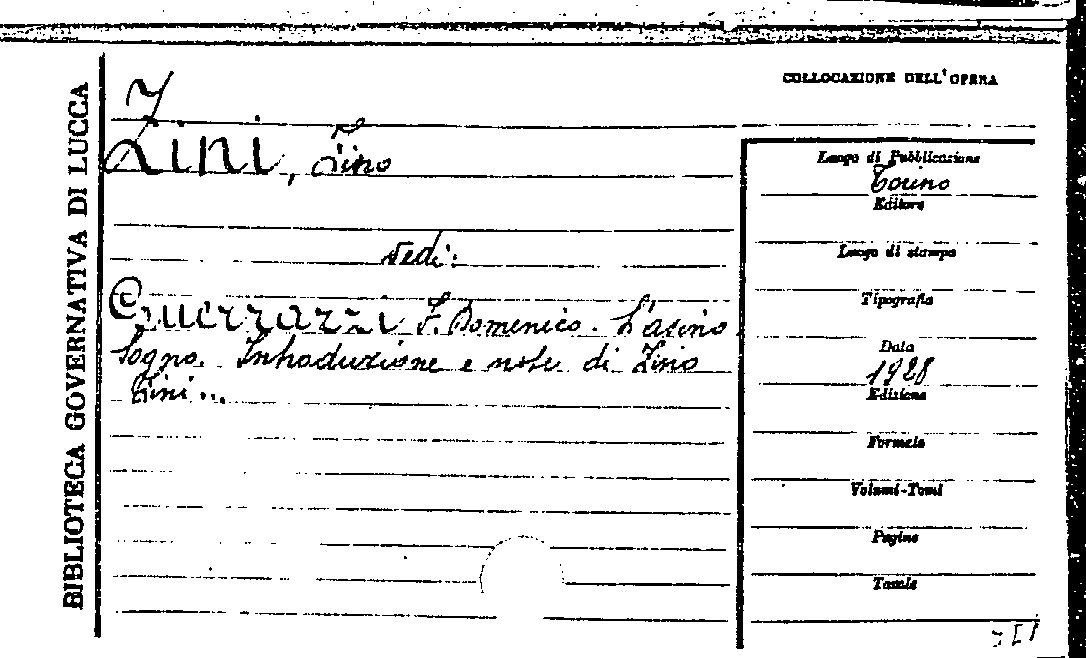 BIBLIOTECA GOVERNATIVA DI LUCCA
Zini, Zino
vedi:
Guerrazzi F. Domenico. L'asino
Sogno. Introduzione e note di Zino
Zini...
COLLOCAZIONE DELL'OPERA
Luogo di Pubblicazione
Torino
Editore
Luogo di stampa
Tipografia
Data
1928
Edizione
Formato
Volumi-Tomi
Pagine
Tavole